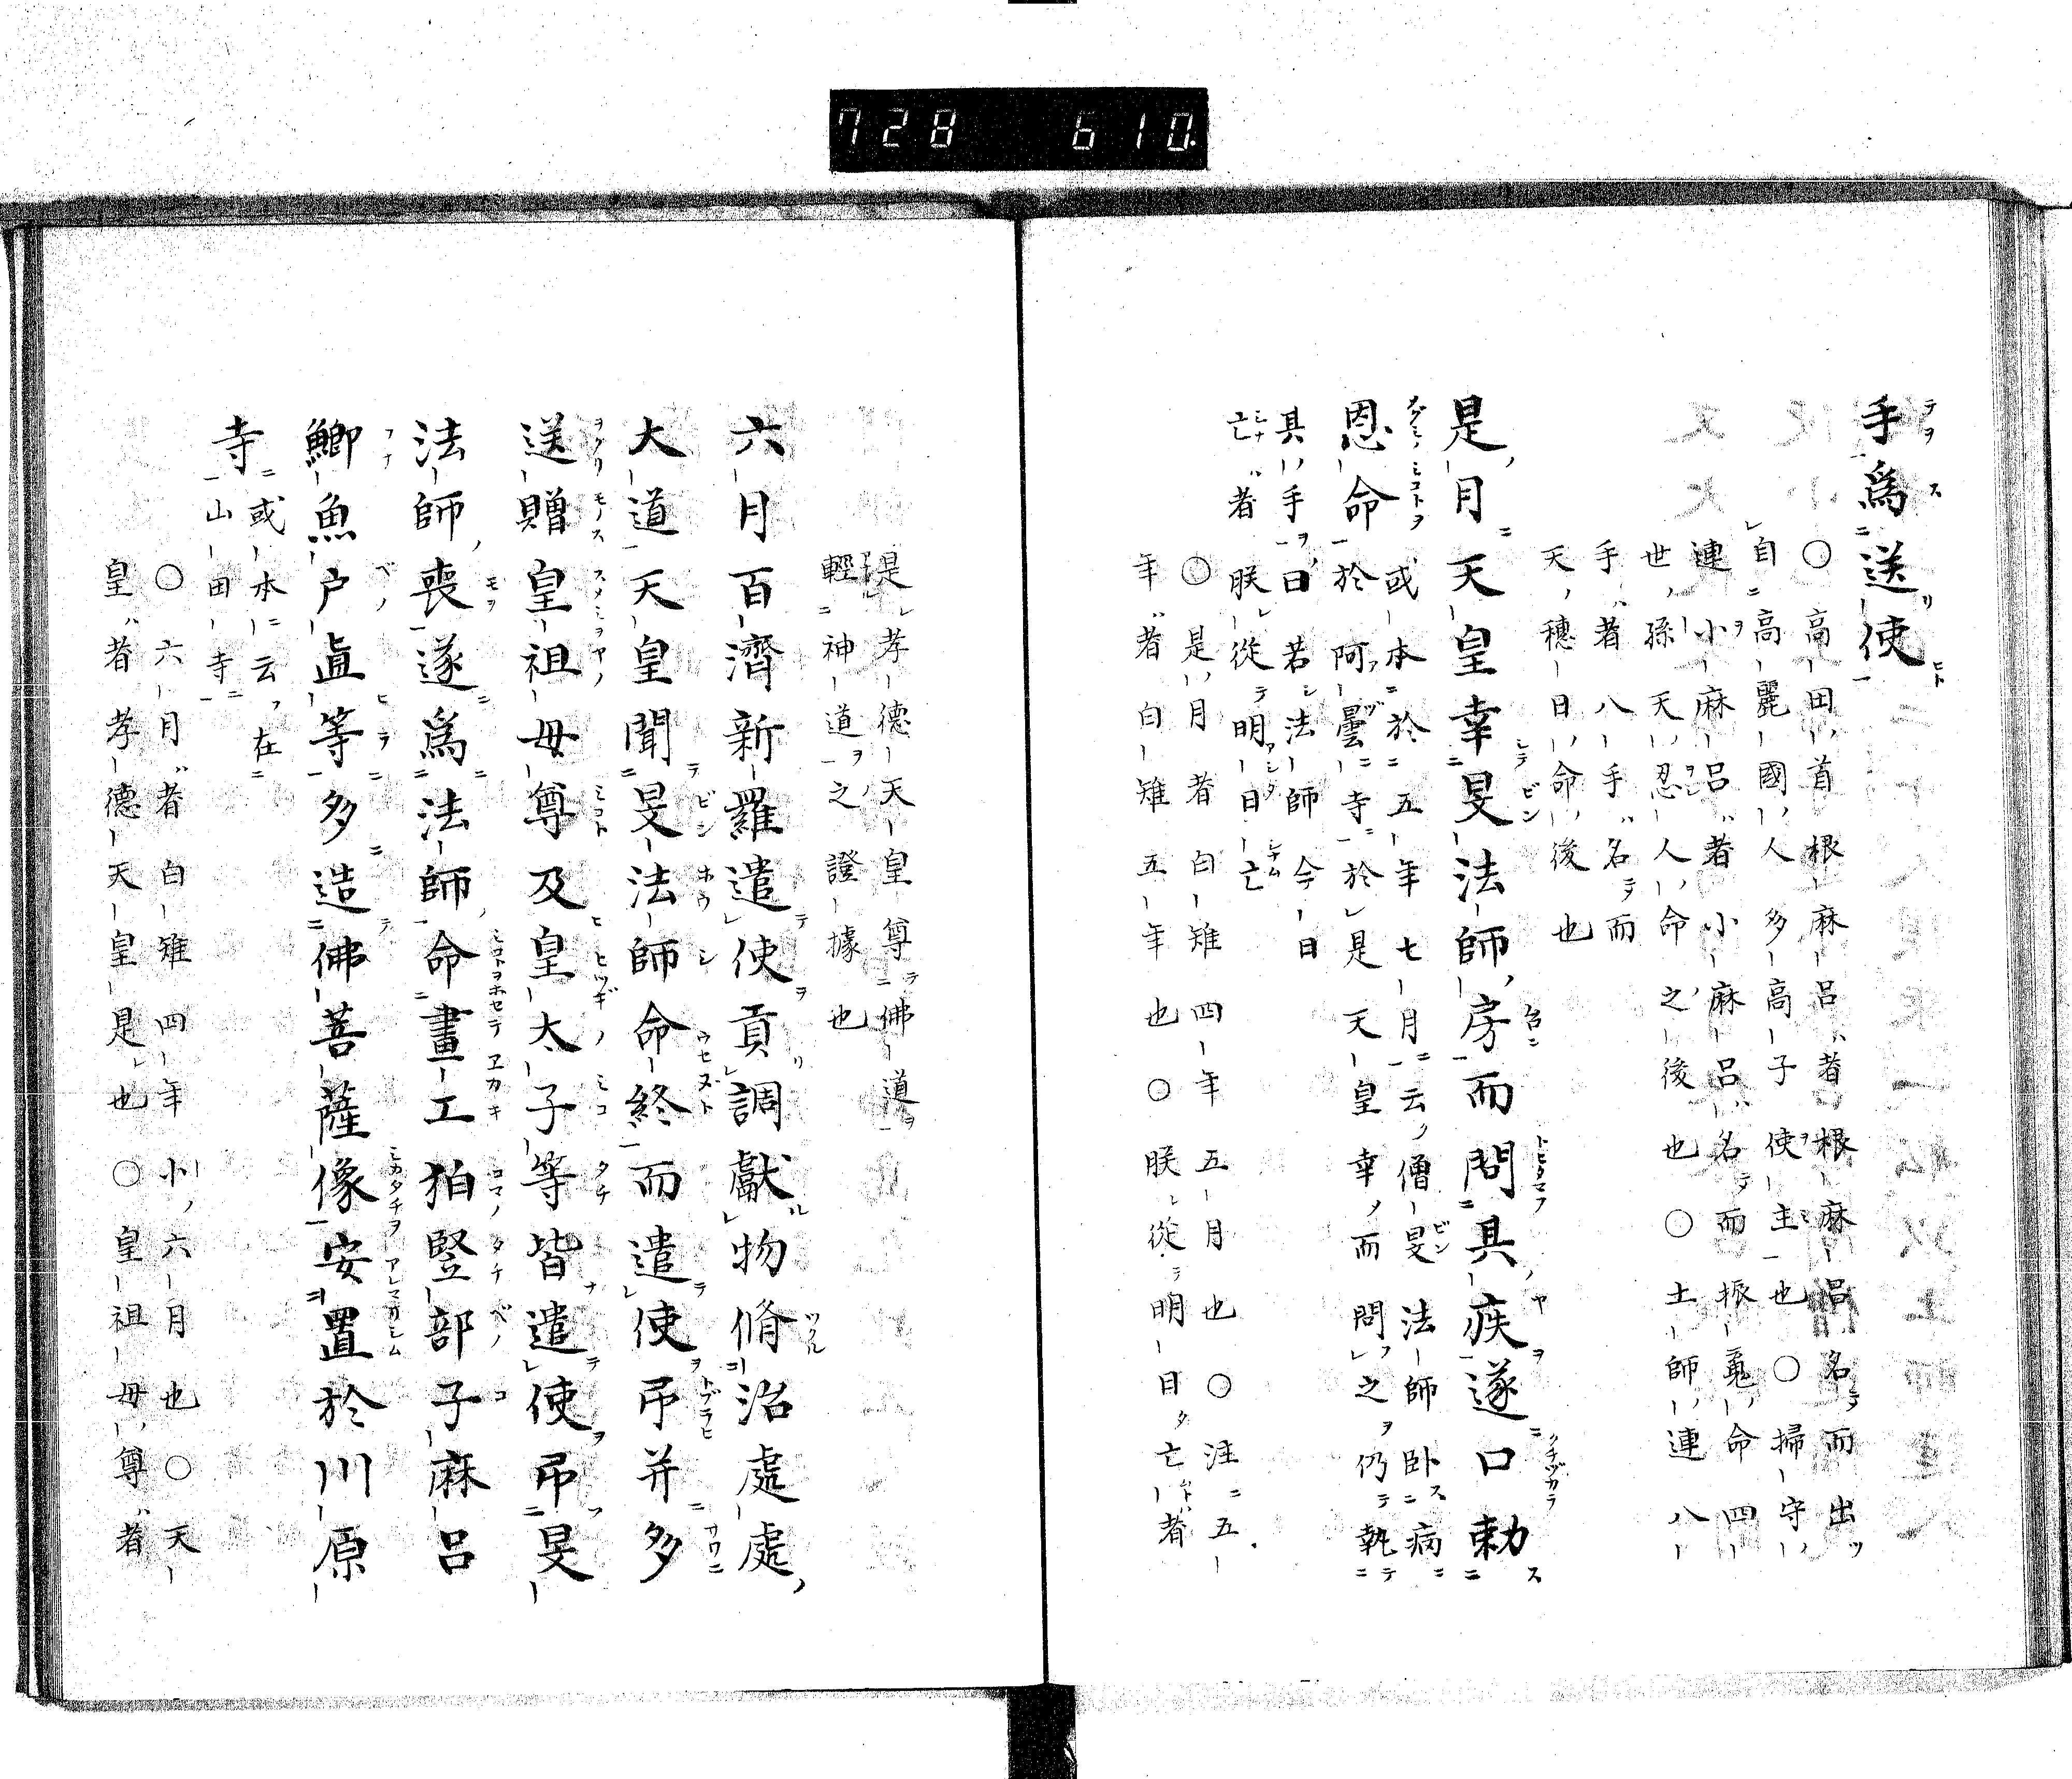 728 610
手爲送使
○高田首根麻呂者根麻呂名而出
自高麗國人多高子使主也○掃守
連小麻呂者小麻呂名而振亀命四
世孫天忍人命之後也○土師連八
手者八手名而
天穗日命後也
是月天皇幸旻法師房而問其疾遂口勅
恩命或本於五年七月云僧旻法師臥病
於阿曇寺於是天皇幸而問之仍執
其手曰若法師今日
亡者朕從明日亡
○是月者白雉四年五月也○注五
年者白雉五年也○朕從明日亡者
是孝德天皇尊佛道
輕神道之證據也
六月百濟新羅遣使貢調獻物脩治處處
大道天皇聞旻法師命終而遣使弔并多
送贈皇祖母尊及皇太子等皆遣使弔旻
法師喪遂爲法師命畫工狛竪部子麻呂
鯽魚戸直等多造佛菩薩像安置於川原
寺或本云在
山田寺
○六月者白雉四年小六月也○天
皇者孝德天皇是也○皇祖母尊者